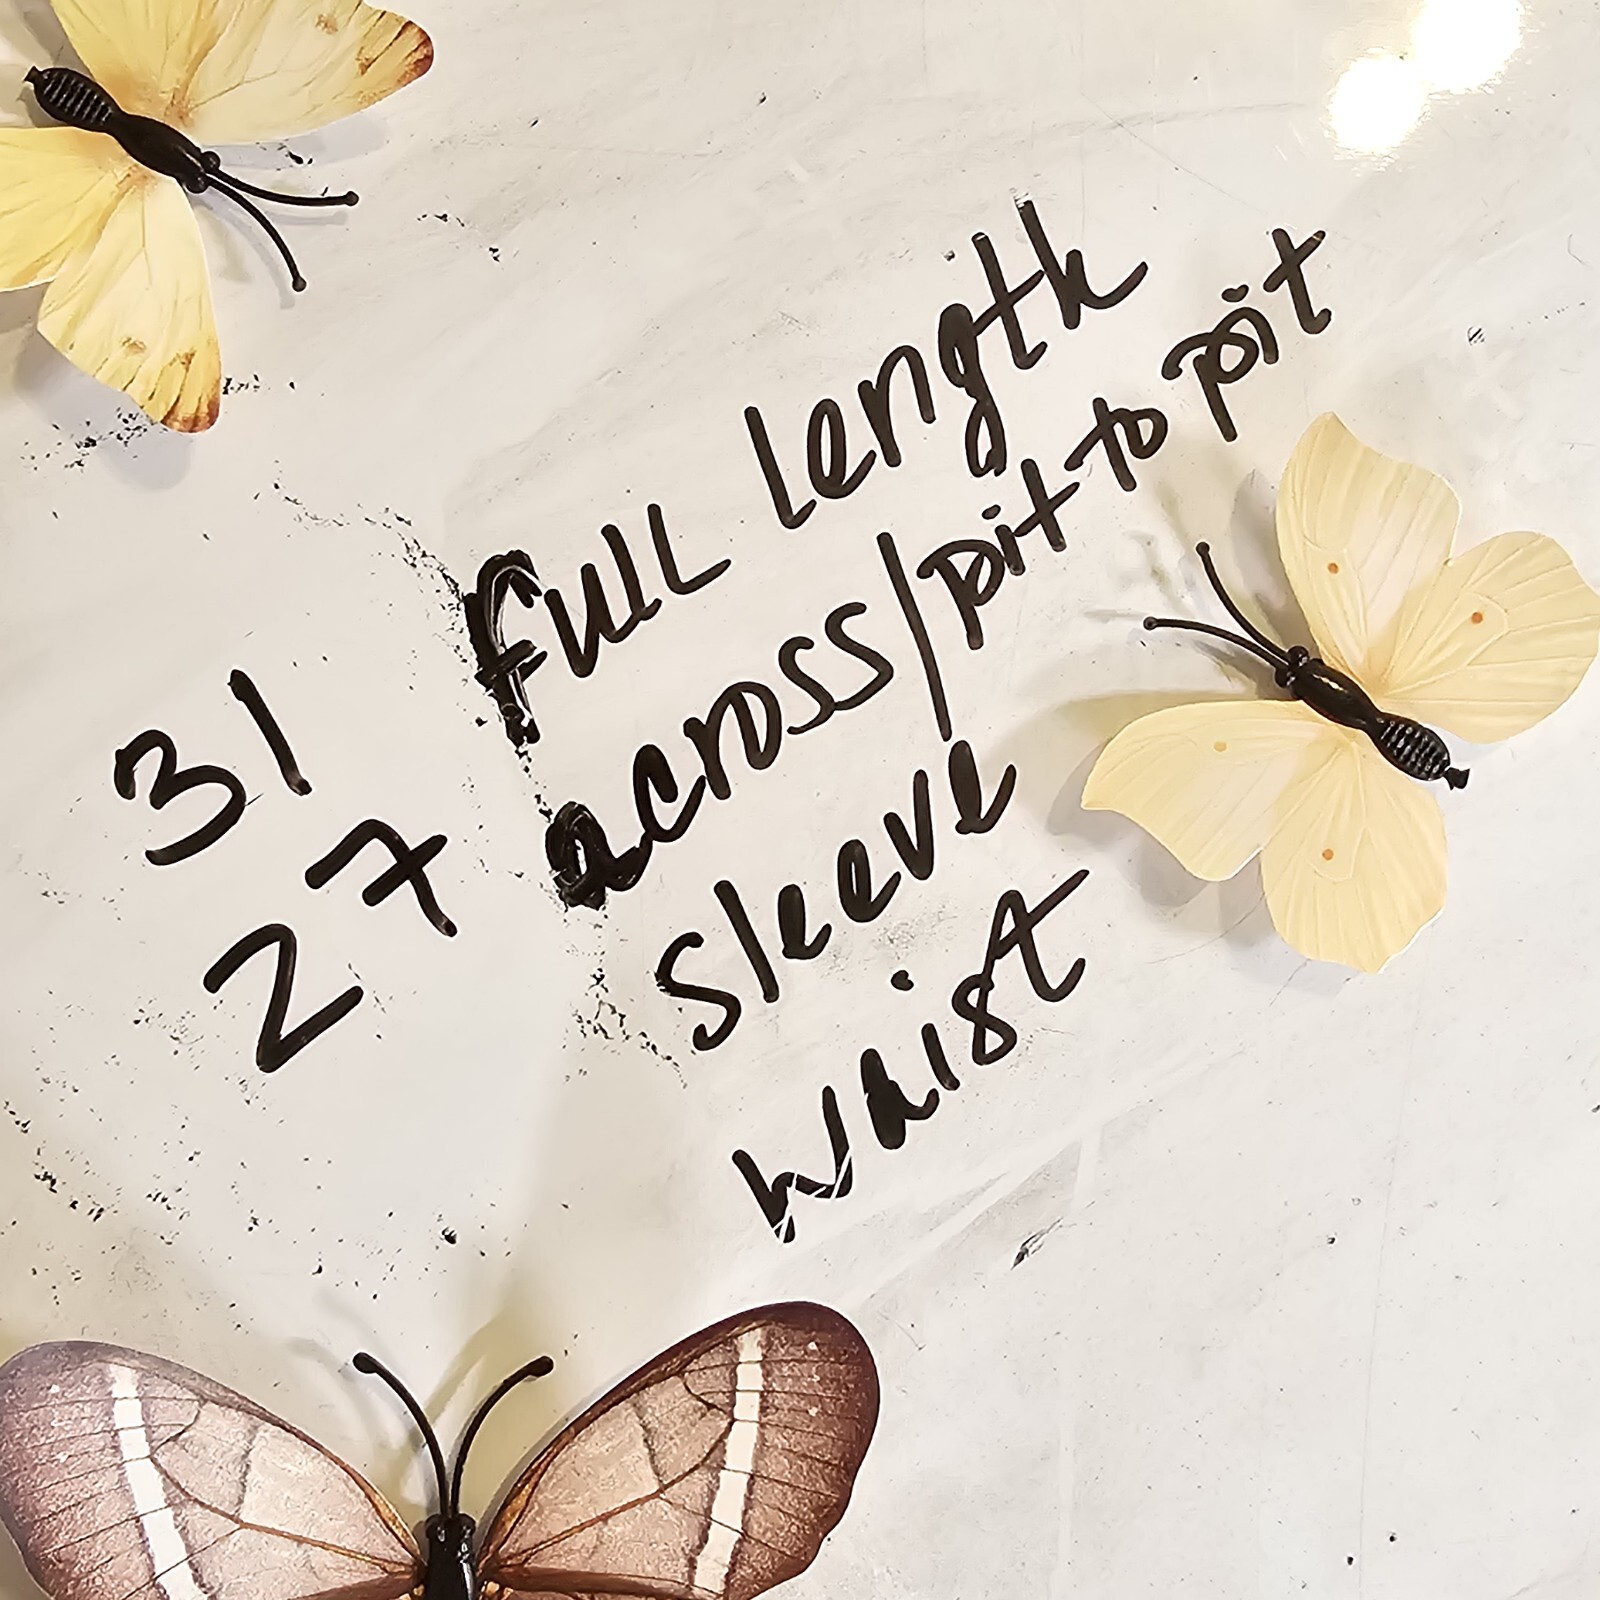 31 full length
27 across/pit to pit
sleeve
waist